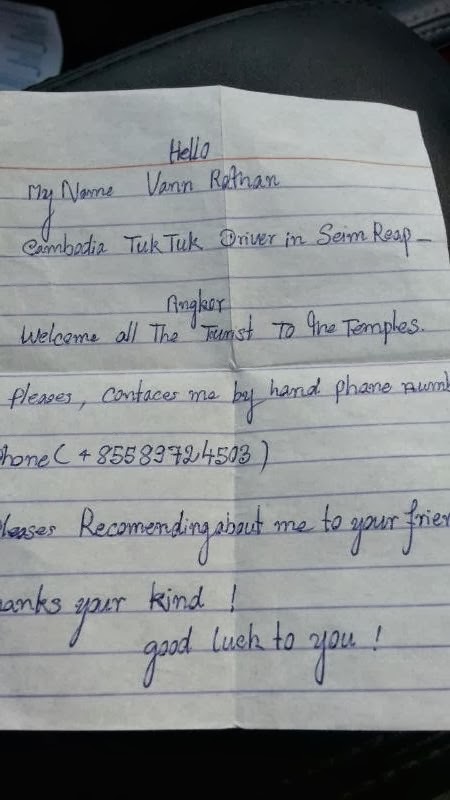 Hello
My Name Vann Rathan
Cambodia TukTuk Driver in Seim Reap -
Angker
Welcome all The Tourist To The Temples.
pleases, contaces me by hand phane numb
hone (+85583724503)
leases Recomending about me to your frien
anks your kind !
good luck to you !